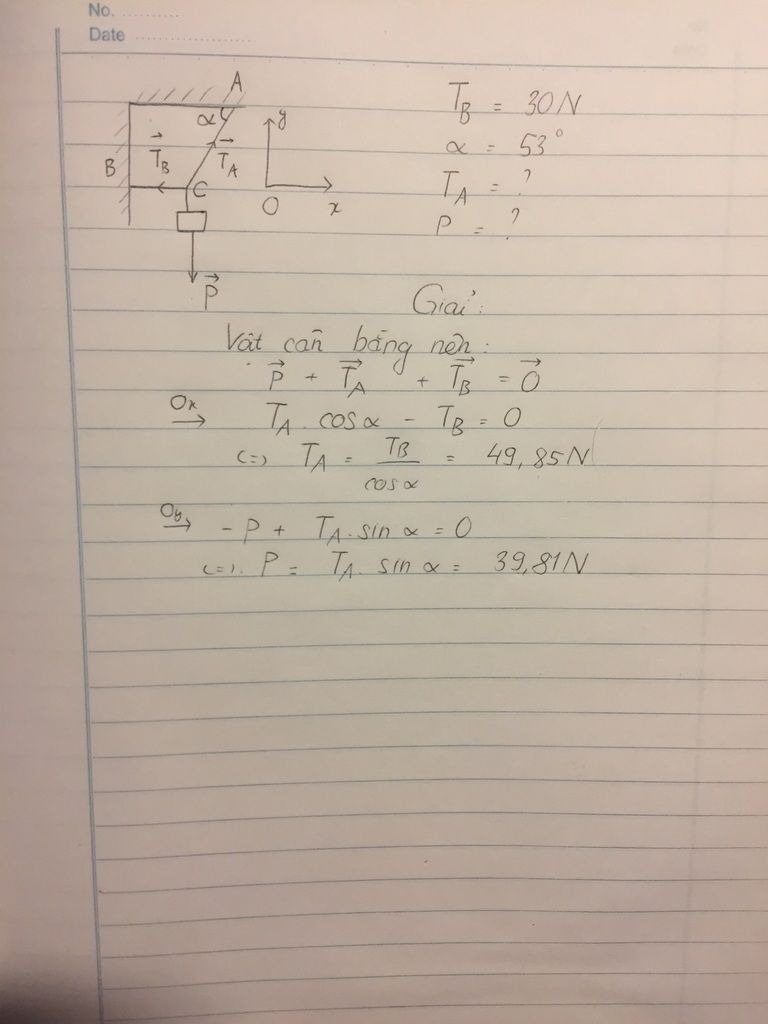 No. ..........
Date ....................
A
α
y
B
T_B
T_A
C
O
x
P
T_B = 30N
α = 53°
T_A = ?
P = ?
Giải:
Vật cân bằng nên:
P + T_A + T_B = 0
Ox → T_A . cosα - T_B = 0
(=) T_A = T_B / cosα = 49,85N
Oy → - P + T_A . sin α = 0
(=). P = T_A . sin α = 39,81N